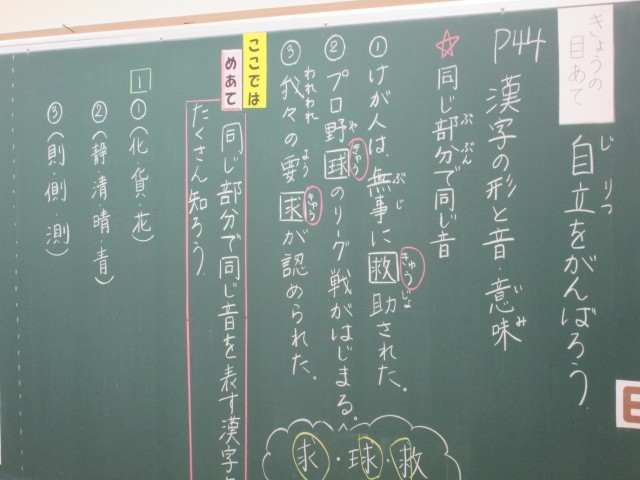 きょうの
目あて
自立をがんばろう。
じりつ
P44 漢字の形と音・意味
いみ
☆同じ部分で同じ音
ぶぶん
①けが人は、無事に救助された。
ぶじ
きゅうじょ
②プロ野球のリーグ戦がはじまる。
や
きゅう
③我々の要求が認められた。
われわれ
よう
きゅう
求・球・救
ここでは
めあて
同じ部分で同じ音を表す漢字
たくさん知ろう。
1
①(化・貨・花)
②(静・清・晴・青)
③(則・側・測)